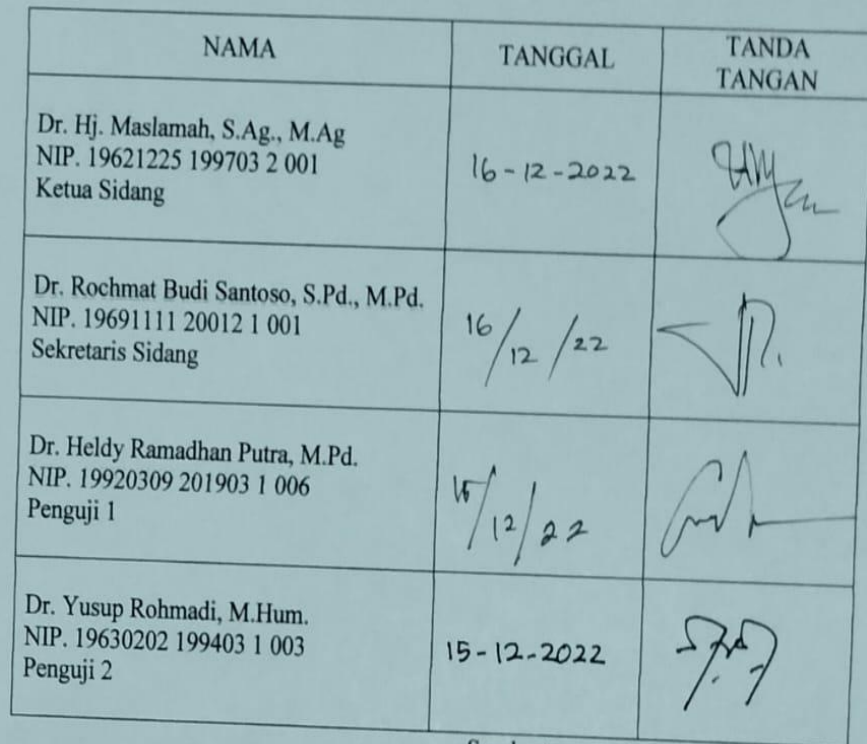 NAMA TANGGAL TANDA TANGAN
Dr. Hj. Maslamah, S.Ag., M.Ag
NIP. 19621225 199703 2 001
Ketua Sidang
16-12-2022
Dr. Rochmat Budi Santoso, S.Pd., M.Pd.
NIP. 19691111 20012 1 001
Sekretaris Sidang
16/12/22
Dr. Heldy Ramadhan Putra, M.Pd.
NIP. 19920309 201903 1 006
Penguji 1
/12/22
Dr. Yusup Rohmadi, M.Hum.
NIP. 19630202 199403 1 003
Penguji 2
15-12-2022